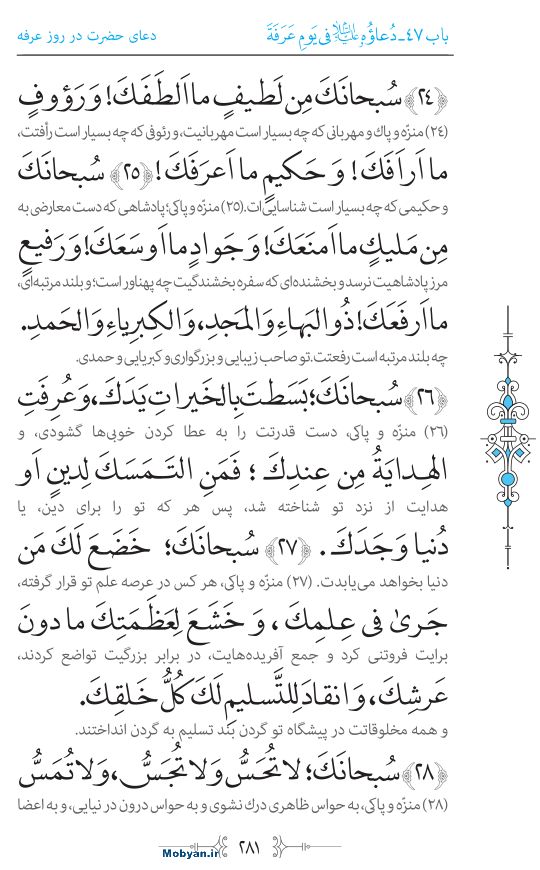 باب ۴۷ـ دُعاؤُهُ علیه‌السلام فی یَومِ عَرَفَةَ
دعای حضرت در روز عرفه
﴿۲۴﴾ سُبحانَكَ مِن لَطیفٍ ما اَلطَفَكَ! وَ رَؤوفٍ
(۲۴) منزّه و پاك و مهربانی که چه بسیار است مهربانیت، و رئوفی که چه بسیار است رأفتت،
ما اَراَفَكَ! وَ حَکیمٍ ما اَعرَفَكَ! ﴿۲۵﴾ سُبحانَكَ
و حکیمی که چه بسیار است شناسایی‌ات. (۲۵) منزّه و پاکی؛ پادشاهی که دست معارضی به
مِن مَلیكٍ ما اَمنَعَكَ! وَ جَوادٍ ما اَوسَعَكَ! وَ رَفیعٍ
مرز پادشاهیت نرسد و بخشنده‌ای که سفره بخشندگیت چه پهناور است؛ و بلند مرتبه‌ای،
ما اَرفَعَكَ! ذُو البَهاءِ وَ المَجدِ، وَ الکِبرِیاءِ وَ الحَمدِ.
چه بلند مرتبه است رفعتت. تو صاحب زیبایی و بزرگواری و کبریایی و حمدی.
﴿۲۶﴾ سُبحانَكَ؛ بَسَطتَ بِالخَیراتِ یَدَكَ، وَ عُرِفَتِ
(۲۶) منزّه و پاکی، دست قدرتت را به عطا کردن خوبی‌ها گشودی، و
الهِدایَةُ مِن عِندِكَ؛ فَمَنِ التَمَسَكَ لِدینٍ اَو
هدایت از نزد تو شناخته شد، پس هر که تو را برای دین، یا
دُنیا وَجَدَكَ. ﴿۲۷﴾ سُبحانَكَ؛ خَضَعَ لَكَ مَن
دنیا بخواهد می‌یابدت. (۲۷) منزّه و پاکی، هر کس در عرصه علم تو قرار گرفته،
جَریٰ فی عِلمِكَ، وَ خَشَعَ لِعَظَمَتِكَ ما دونَ
برایت فروتنی کرد و جمع آفریده‌هایت، در برابر بزرگیت تواضع کردند،
عَرشِكَ، وَ انقادَ لِلتَّسلیمِ لَكَ کُلُّ خَلقِكَ.
و همه مخلوقاتت در پیشگاه تو گردن بَند تسلیم به گردن انداختند.
﴿۲۸﴾ سُبحانَكَ؛ لا تُحَسُّ وَ لا تُجَسُّ، وَ لا تُمَسُّ
(۲۸) منزّه و پاکی، به حواس ظاهری درك نشوی و به حواس درون در نیایی، و به اعضا
۲۸۱
Mobyan.ir